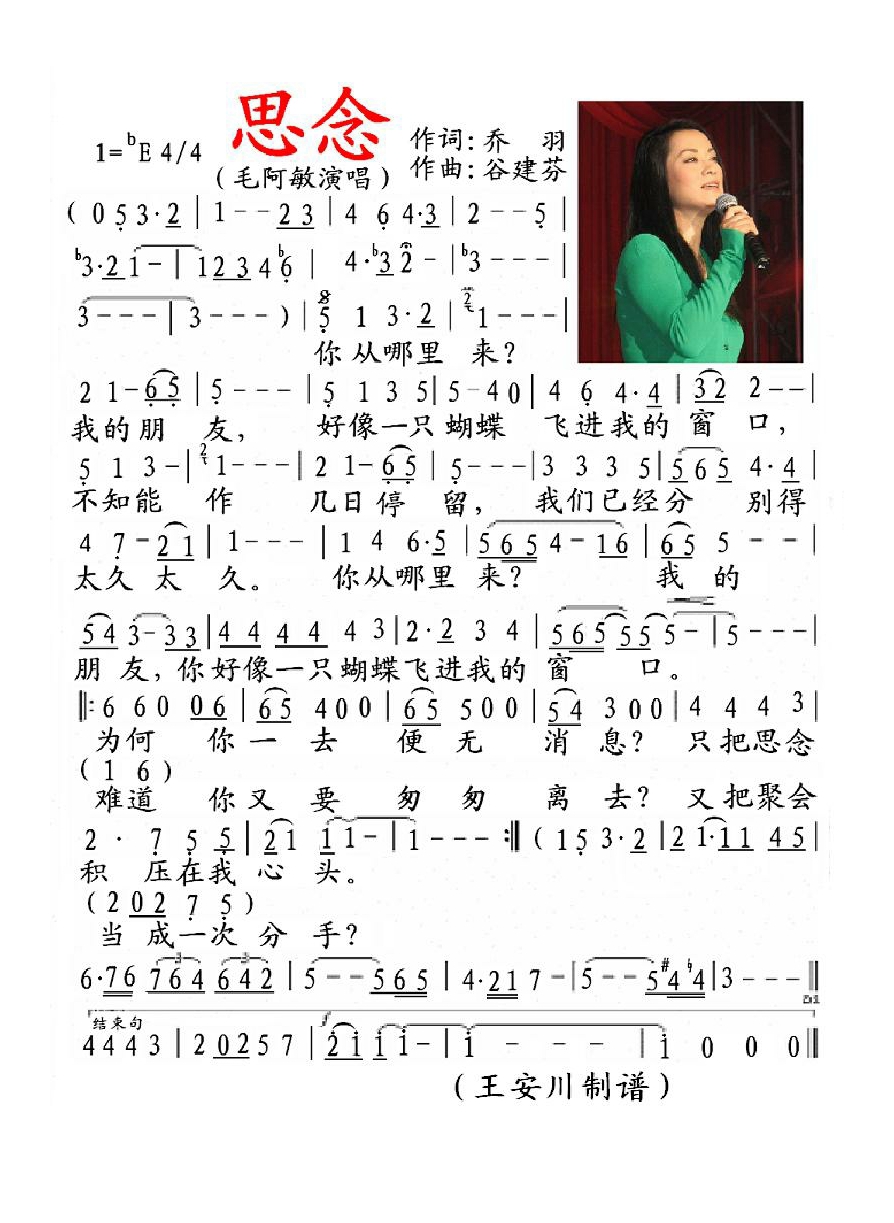 思念
1=ᵇE 4/4
作词:乔 羽
作曲:谷建芬
(毛阿敏演唱)
( 0 5 3·2 | 1 - - 2 3 | 4 6 4·3 | 2 - - 5 |
ᵇ3·2 1 - | 1 2 3 4 ᵇ6 | 4·ᵇ3 2 - | ᵇ3 - - - |
3 - - - | 3 - - - ) | 5 1 3·2 | 1 - - - |
你从哪里 来?
2 1 - 6 5 | 5 - - - | 5 1 3 5 | 5 - 4 0 | 4 6 4·4 | 3 2 2 - - |
我的朋 友, 好像一只蝴蝶 飞进我的窗 口,
5 1 3 - | 1 - - - | 2 1 - 6 5 | 5 - - - | 3 3 3 5 | 5 6 5 4·4 |
不知能 作 几日停 留, 我们已经分 别得
4 7 - 2 1 | 1 - - - | 1 4 6·5 | 5 6 5 4 - 1 6 | 6 5 5 - - |
太久太 久。 你从哪里 来? 我 的
5 4 3 - 3 3 | 4 4 4 4 4 3 | 2·2 3 4 | 5 6 5 5 5 5 - | 5 - - - |
朋 友,你好像一只蝴蝶飞进我的 窗 口。
‖: 6 6 0 0 6 | 6 5 4 0 0 | 6 5 5 0 0 | 5 4 3 0 0 | 4 4 4 3 |
为何 你一 去 便 无 消 息? 只把思念
( 1 6 )
难道 你又 要 匆 匆 离 去? 又把聚会
2 · 7 5 5 | 2 1 1 1 - | 1 - - - :‖ ( 1 5 3·2 | 2 1·1 1 4 5 |
积 压在我 心 头。
( 2 0 2 7 5 )
当 成一次 分 手?
6·7 6 7 6 4 6 4 2 | 5 - - 5 6 5 | 4·2 1 7 - | 5 - - 5 #4 ♮4 | 3 - - - ‖
D1
结束句
4 4 4 3 | 2 0 2 5 7 | 2 1 1 1 - | 1 - - - | 1 0 0 0 ‖
(王安川制谱)